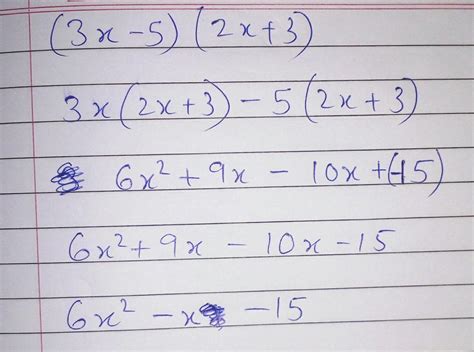 (3x-5)(2x+3)
3x(2x+3)-5(2x+3)
6x²+9x-10x+(-15)
6x²+9x-10x-15
6x²-x-15